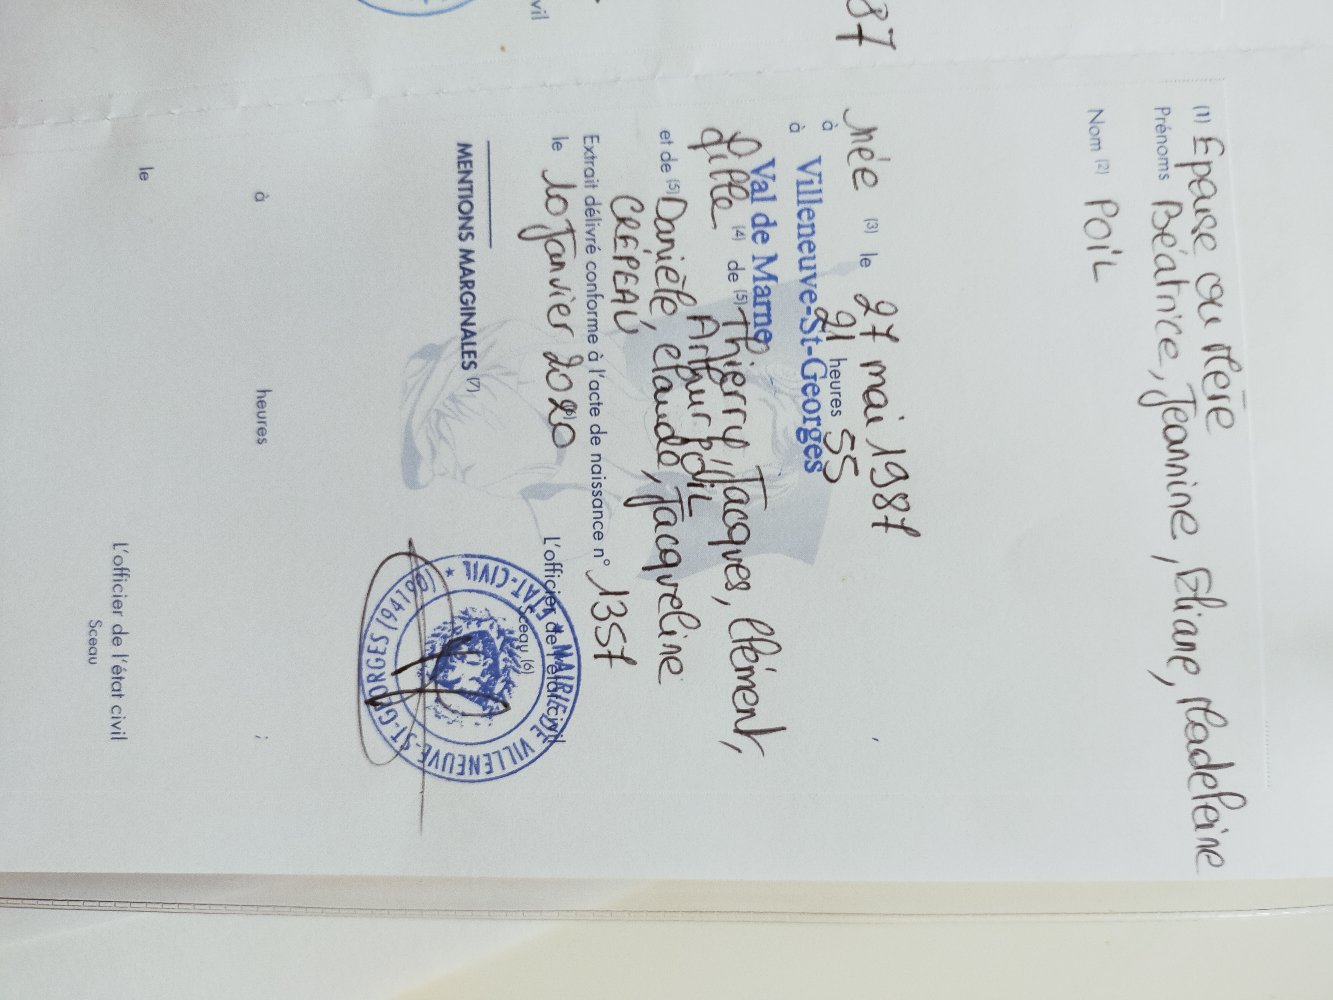 87
civil
(1) Epouse ou Mère
Prénoms Béatrice, Jeannine, Eliane, Madeleine
Nom (2) POIL
Née (3) le 27 mai 1987
à 21 heures 55
à Villeneuve-St-Georges
Val de Marne
fille (4) de (5) Thierry, Jacques, Clément,
Arthur POIL
et de (5) Danièle, Claude, Jacqueline
CREPEAU
Extrait délivré conforme à l'acte de naissance n° 1357
le 10 Janvier 2020
L'officier de l'état civil
Sceau (6)
MAIRIE DE VILLENEUVE-ST-GEORGES (94190)
* ETAT-CIVIL *
MENTIONS MARGINALES (7)
à heures ;
le
L'officier de l'état civil
Sceau